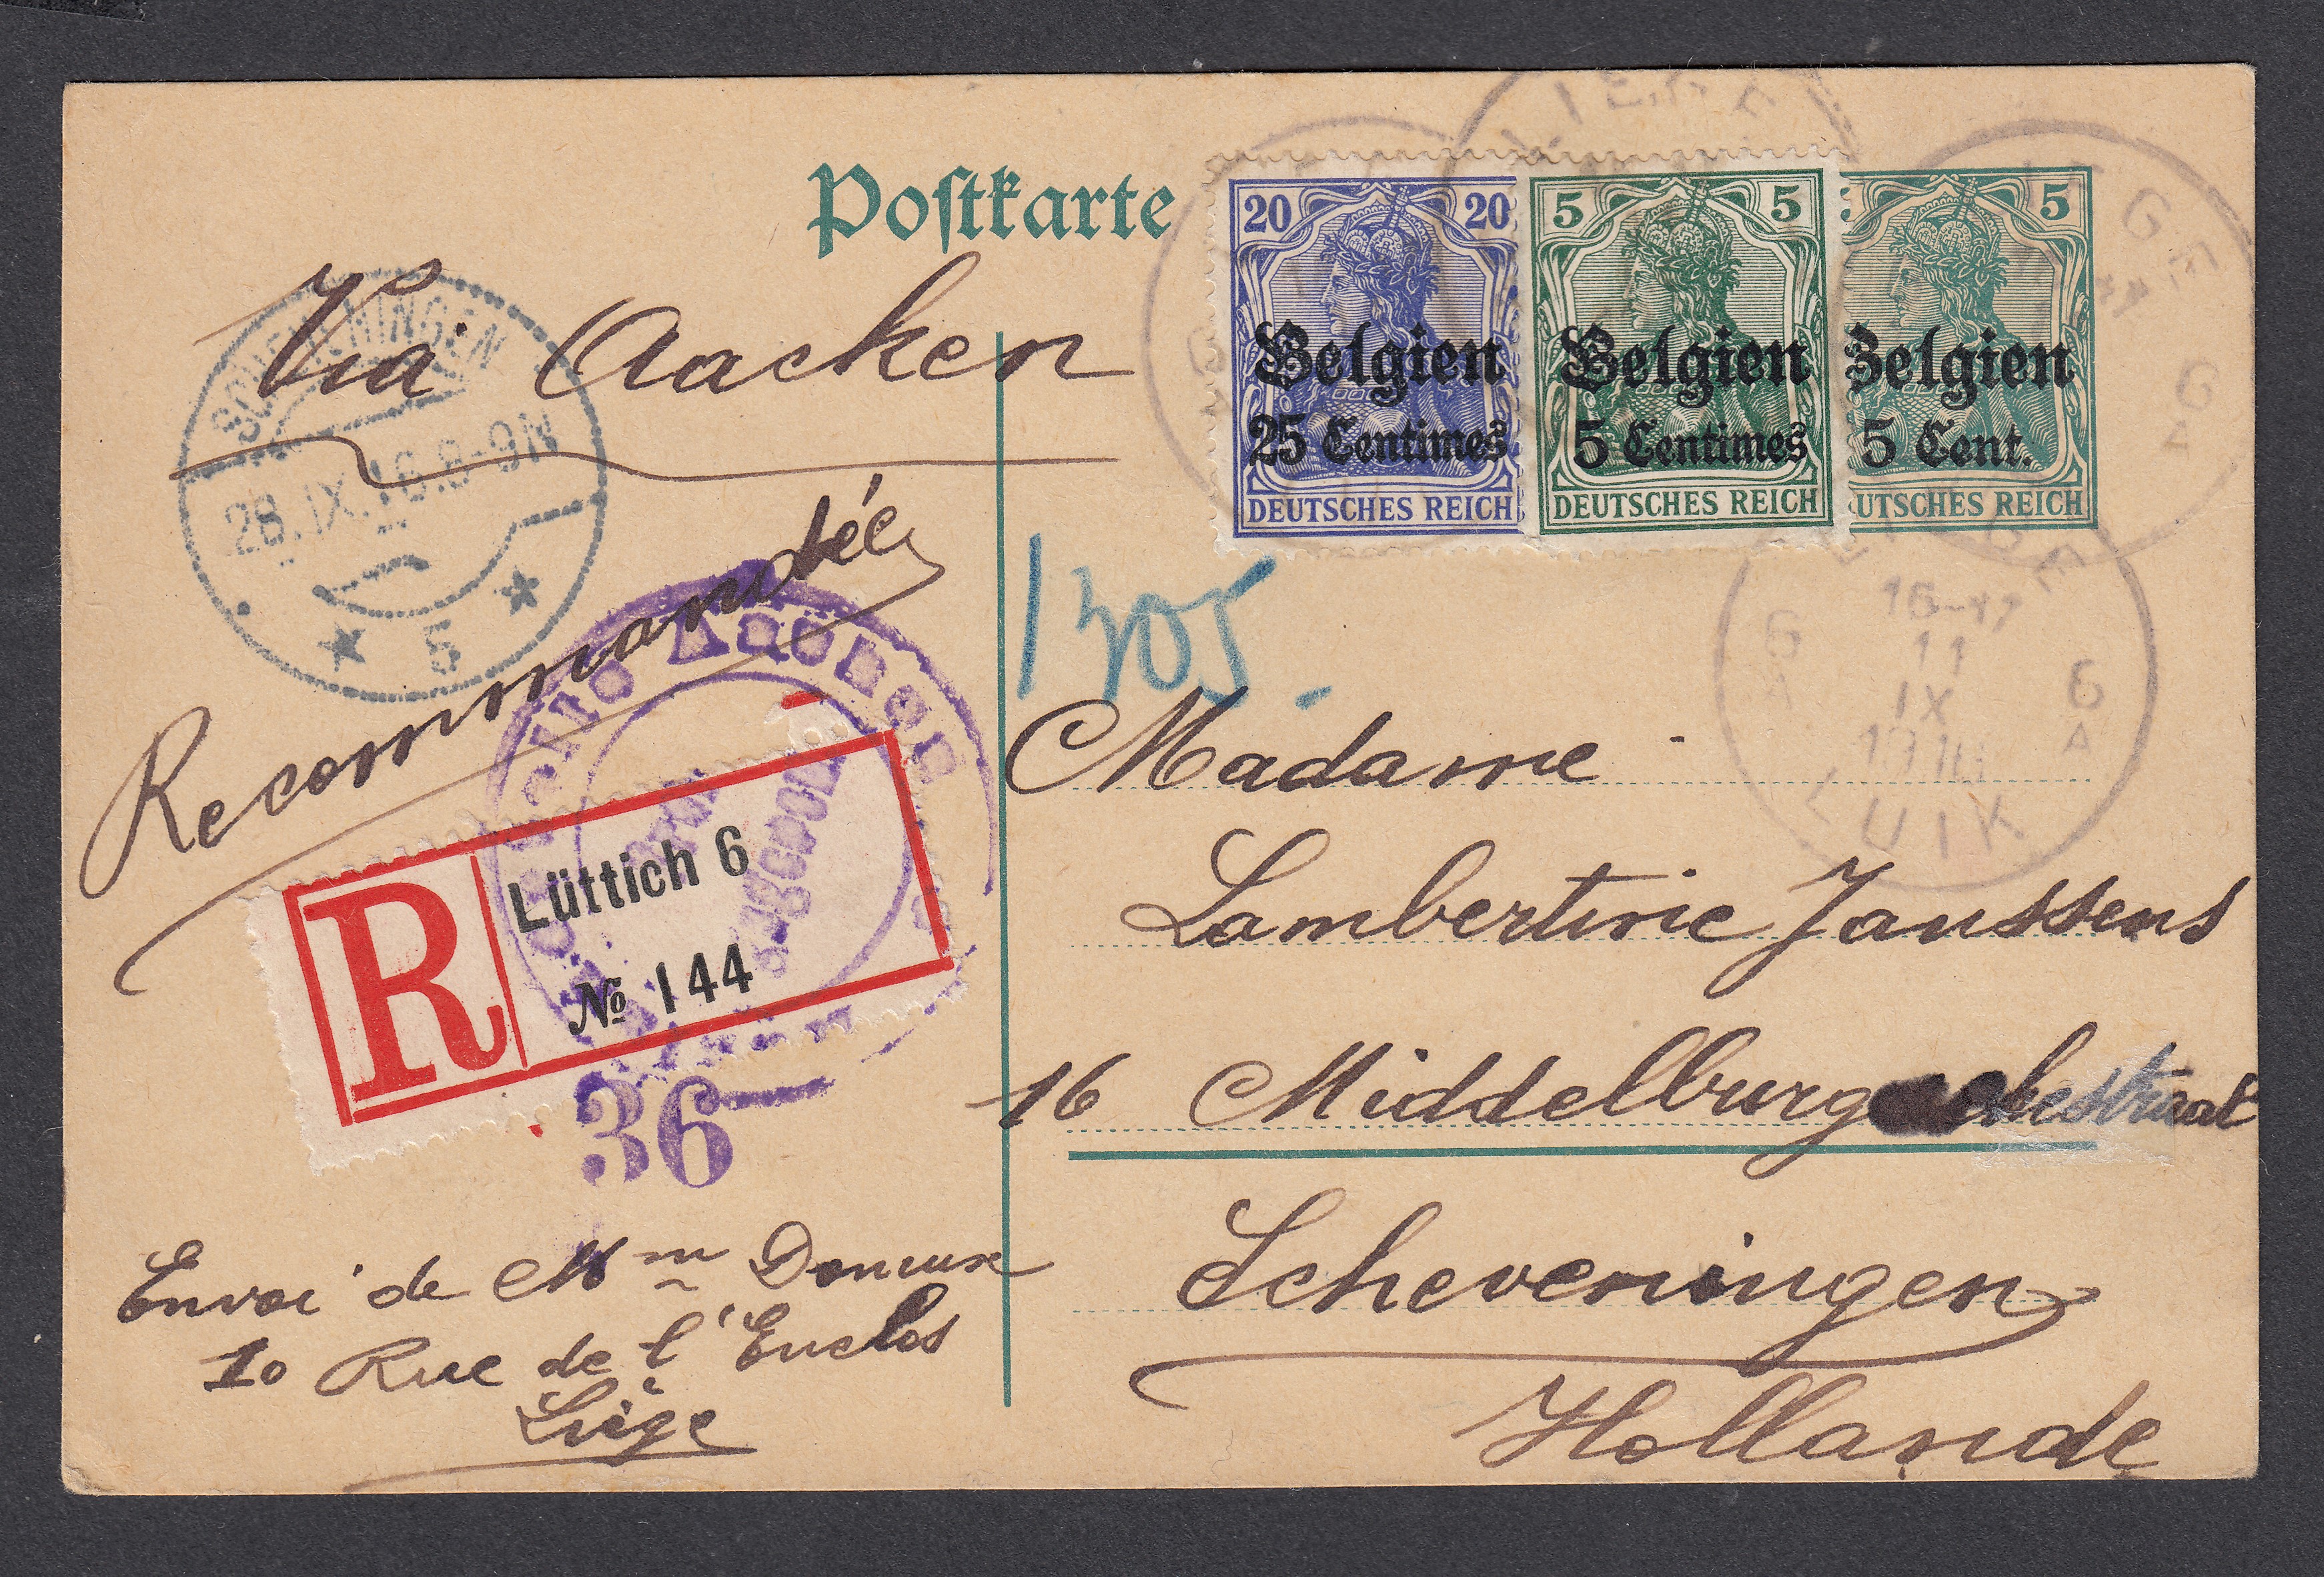 Postkarte
20 20
Belgien
25 Centimes
DEUTSCHES REICH
5 5
Belgien
5 Centimes
DEUTSCHES REICH
5
Belgien
5 Cent.
UTSCHES REICH
Via Aacken
SCHEVENINGEN
28.IX.16.8-9N
5
Recommandée
1305.
LIEGE
16-17
11
IX
1916
6 A
6 A
LUIK
R
Lüttich 6
№ 144
Aachen
36
Madame
Lambertine Janssens
16 Middelburg straat
Scheveningen
Hollande
Envoi de Mm
10 Rue de l'Enclos
Liège